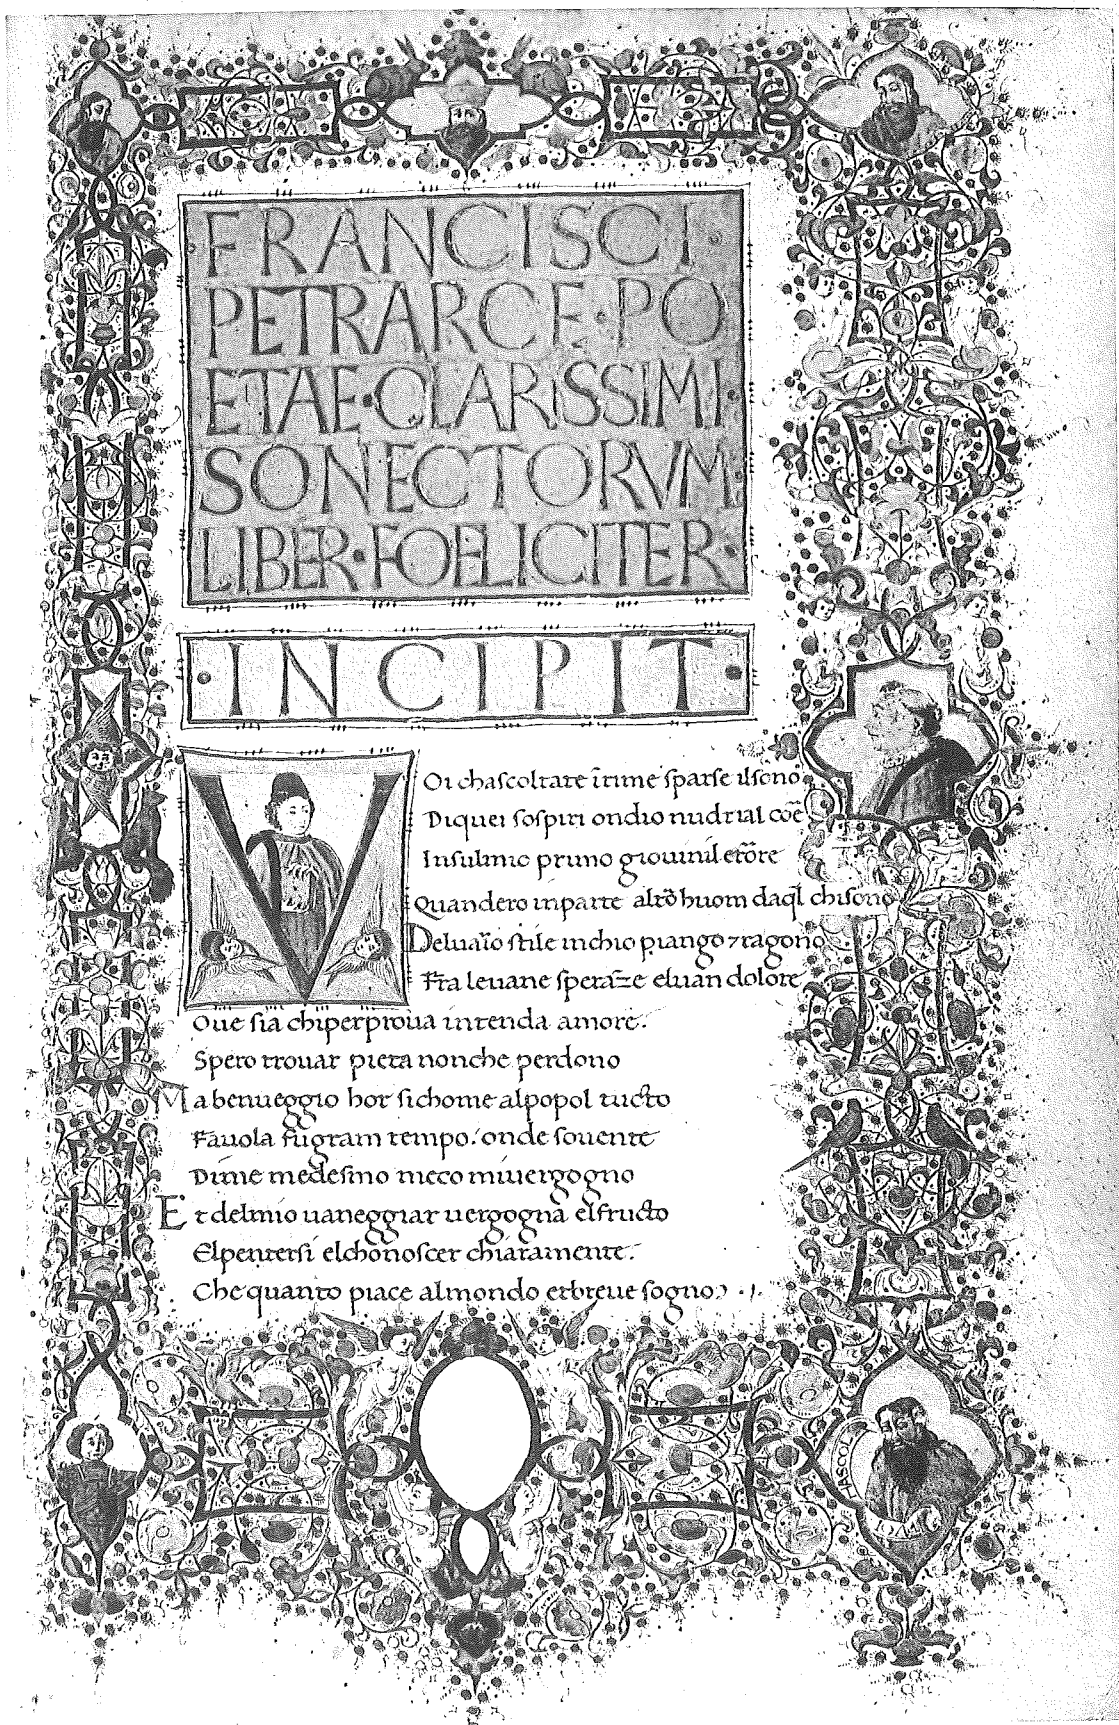 FRANCISCI
PETRARCE·PO
ETAE·CLARISSIMI
SONECTORVM
LIBER·FOELICITER·
·INCIPIT·
VOi chascoltate ı̄rime sparse ilsōno
Diquei sospiri ondio nudrial cōe
Insulmio primo giovinil erōre
Quandero inparte altrō huom daql̄ chisono
Deluario stile inchio piango ⁊ragono
Fra levane sperāze eluan dolore
Oue sia chiperproua intenda amore:
Spero trouar pieta nonche perdono
Ma benueggio hor sichome alpopol tucto
Fauola fuigram tempo: onde souente
Dime medesmo meco miuergogno
Et delmio uaneggiar uergogna elfructo
Elpentersi elchonoscer chiaramente:
Che quanto piace almondo etbreue sogno